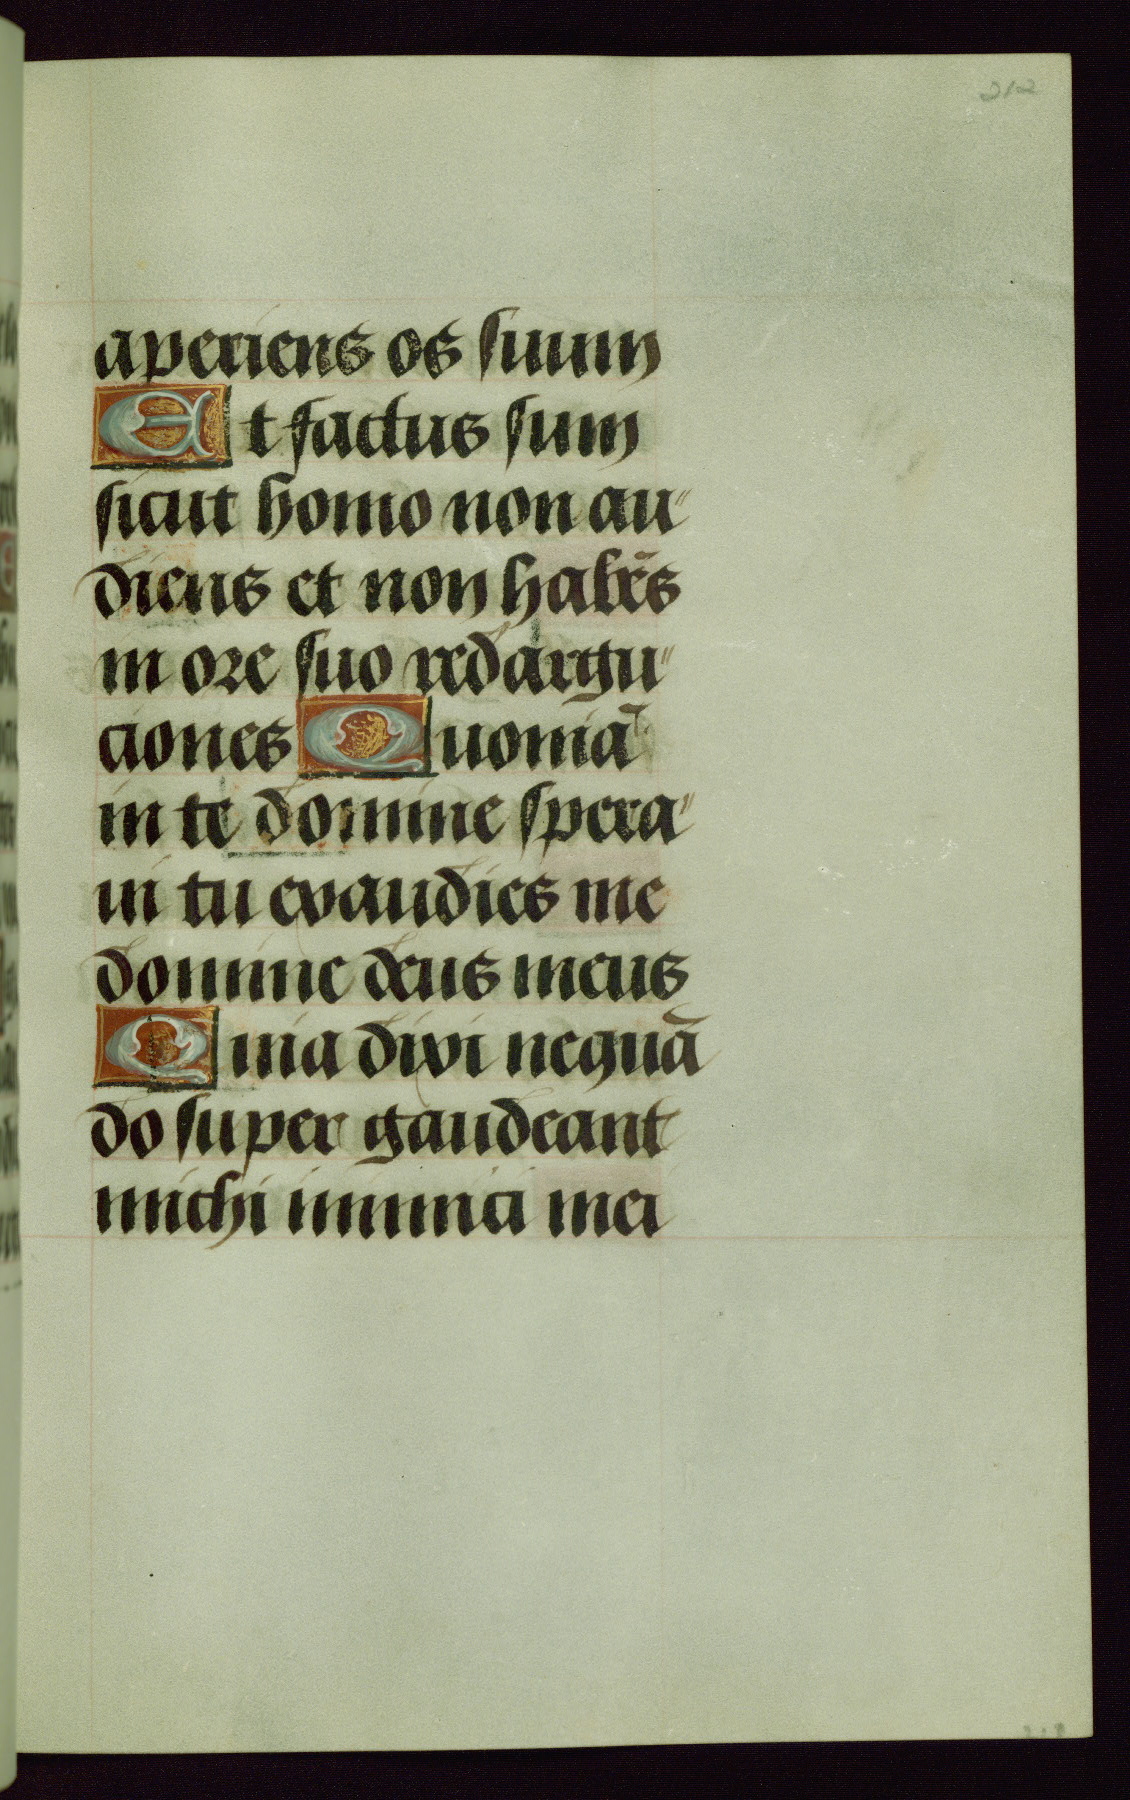 212
aperiens os suum
Et factus sum
sicut homo non au"
diens et non habẽs
in ore suo redargu"
ciones Quoniã
in te domine spera"
ui tu exaudies me
domine deus meus
Quia dixi nequã
do super gaudeant
michi inimici mei